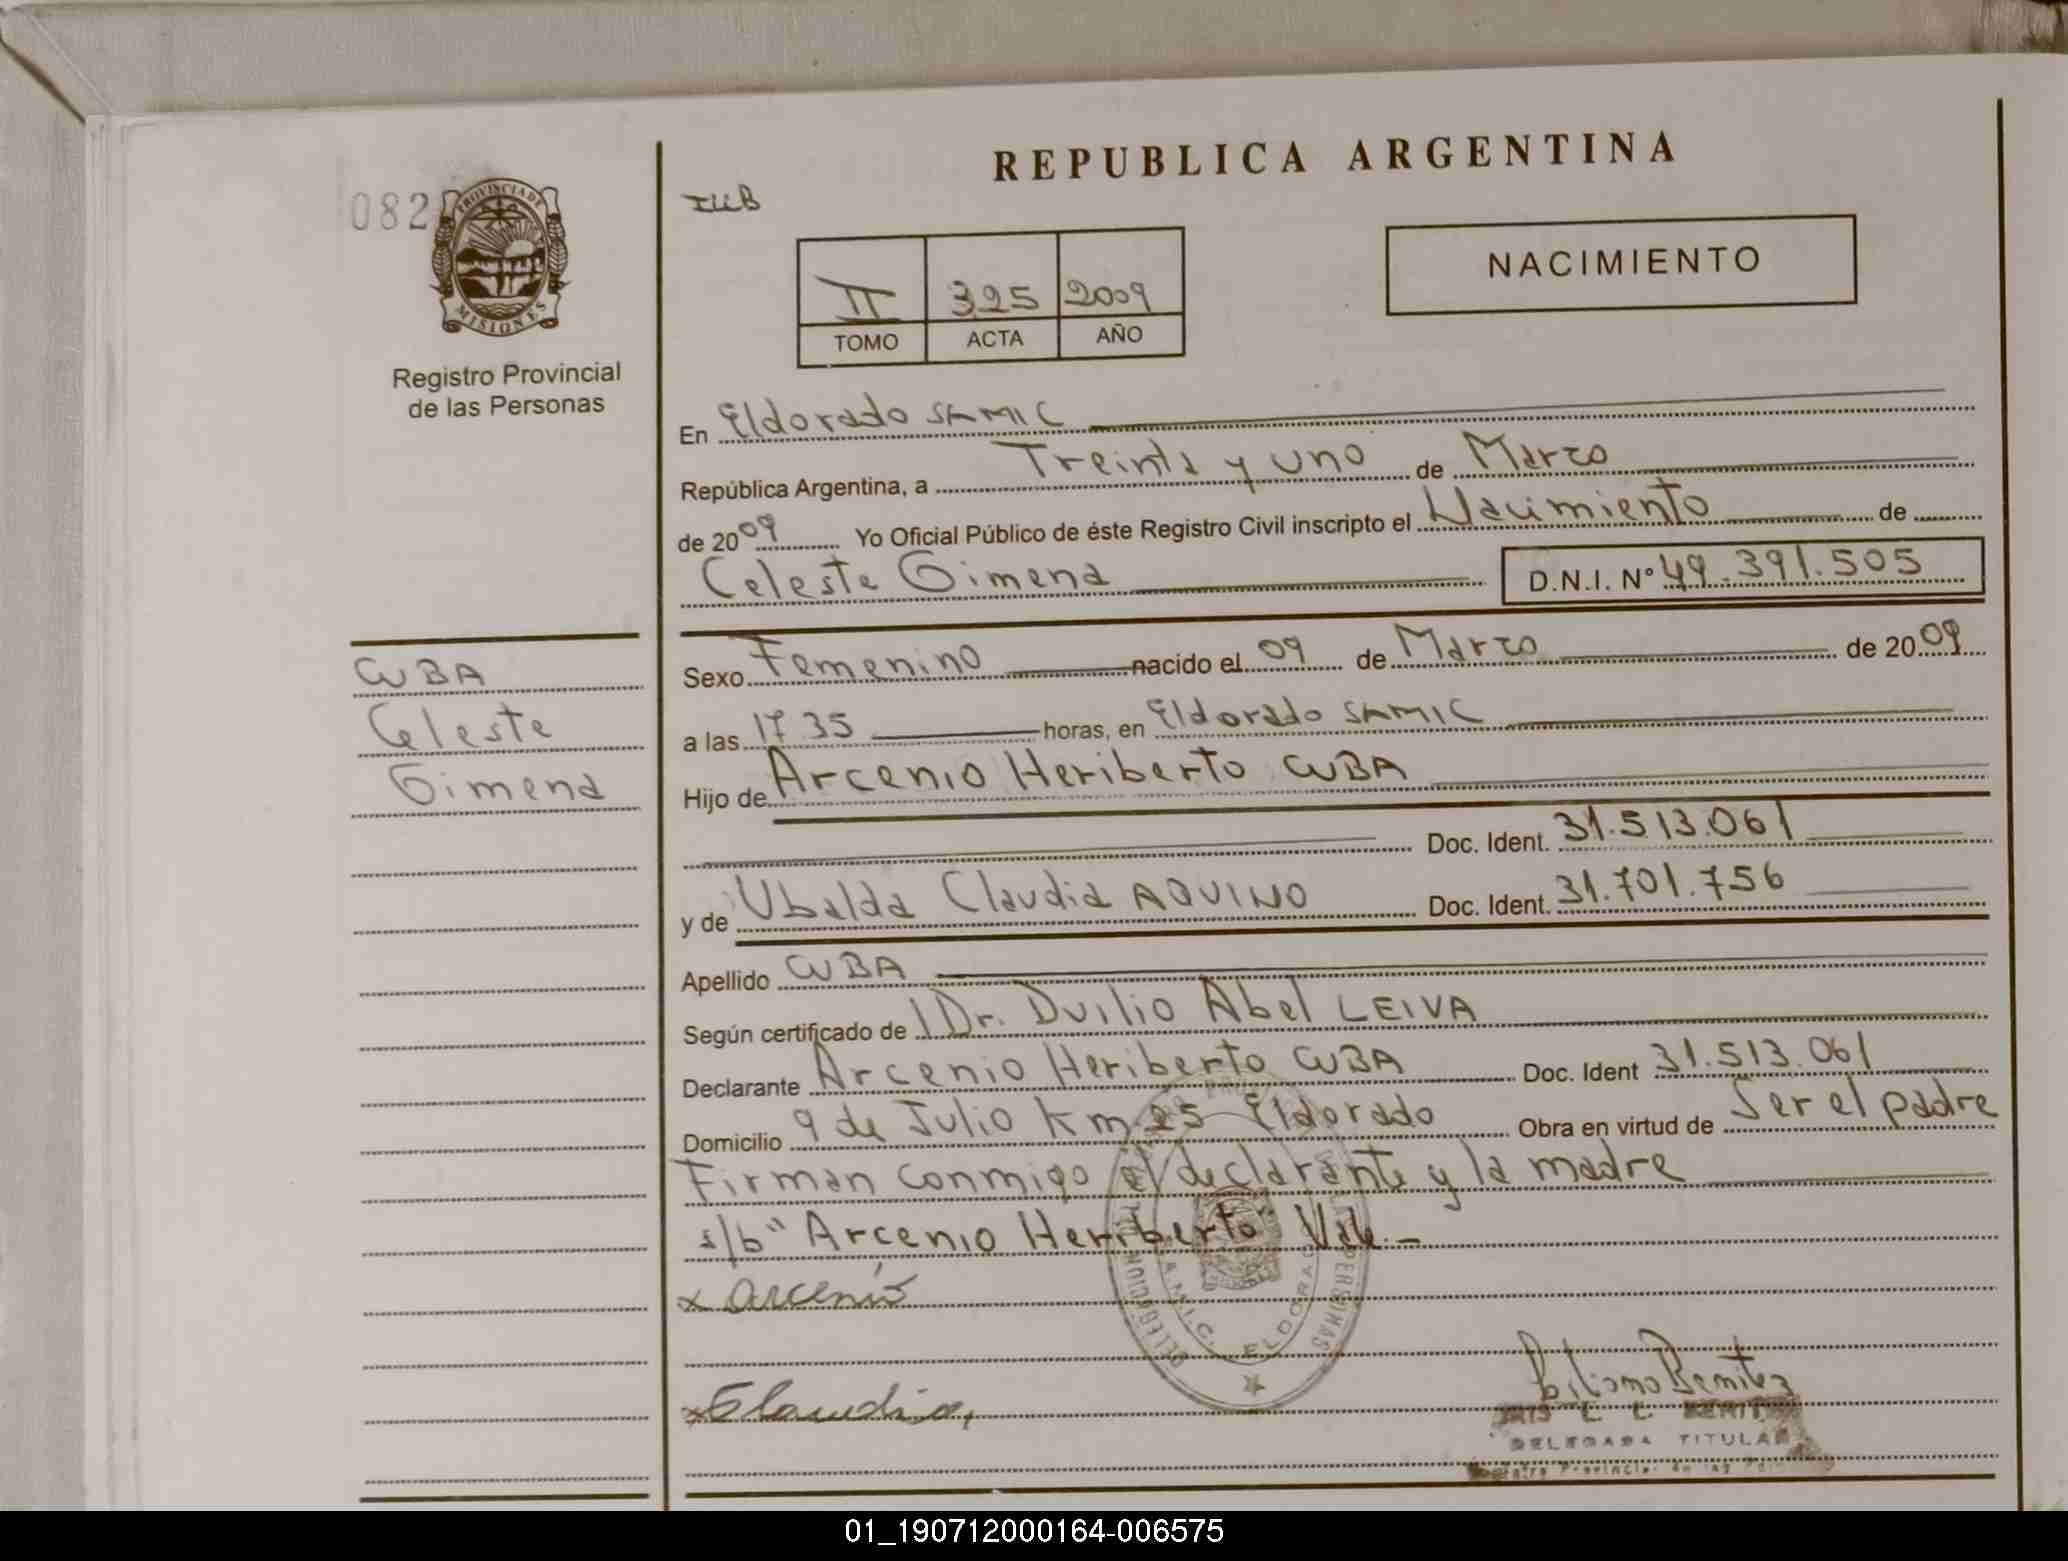 REPUBLICA ARGENTINA
082
PROVINCIA DE
MISIONES
Registro Provincial
de las Personas
NACIMIENTO
II 325 2009
TOMO ACTA AÑO
En Eldorado SAMIC
República Argentina, a Treinta y uno de Marzo
de 2009 Yo Oficial Público de éste Registro Civil inscripto el Nacimiento de
Celeste Gimena D.N.I. Nº 49.391.505
CUBA
Celeste
Gimena
Sexo Femenino nacido el 09 de Marzo de 2009
a las 17 35 horas, en Eldorado SAMIC
Hijo de Arcenio Heriberto CUBA
Doc. Ident. 31.513.061
y de Ubalda Claudia AQUINO Doc. Ident. 31.701.756
Apellido CUBA
Según certificado de Dr. Duilio Abel LEIVA
Declarante Arcenio Heriberto CUBA Doc. Ident 31.513.061
Domicilio 9 de Julio Km 25 Eldorado Obra en virtud de Ser el padre
Firman conmigo el declarante y la madre
s/b "Arcenio Heriberto" Vale.-
x Arcenio
x Claudia
Benitez
DELEGADA TITULAR
ELDORADO
01_190712000164-006575